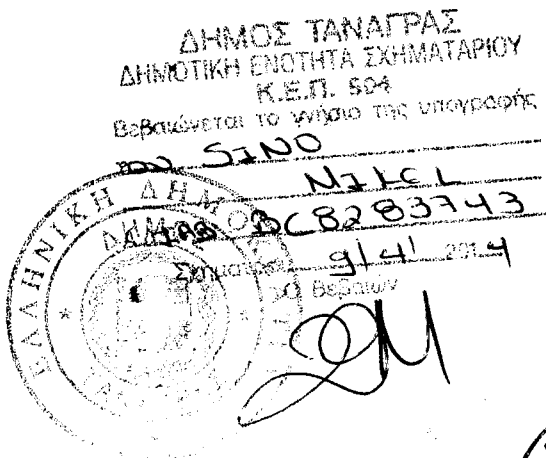 ΔΗΜΟΣ ΤΑΝΑΓΡΑΣ
ΔΗΜΟΤΙΚΗ ΕΝΟΤΗΤΑ ΣΧΗΜΑΤΑΡΙΟΥ
Κ.Ε.Π. 504
Βεβαιώνεται το γνήσιο της υπογραφής
του SINO
NIKEL
BC8283743
9/4/ 2014
Ο Βεβαιων
ΕΛΛΗΝΙΚΗ ΔΗΜΟ